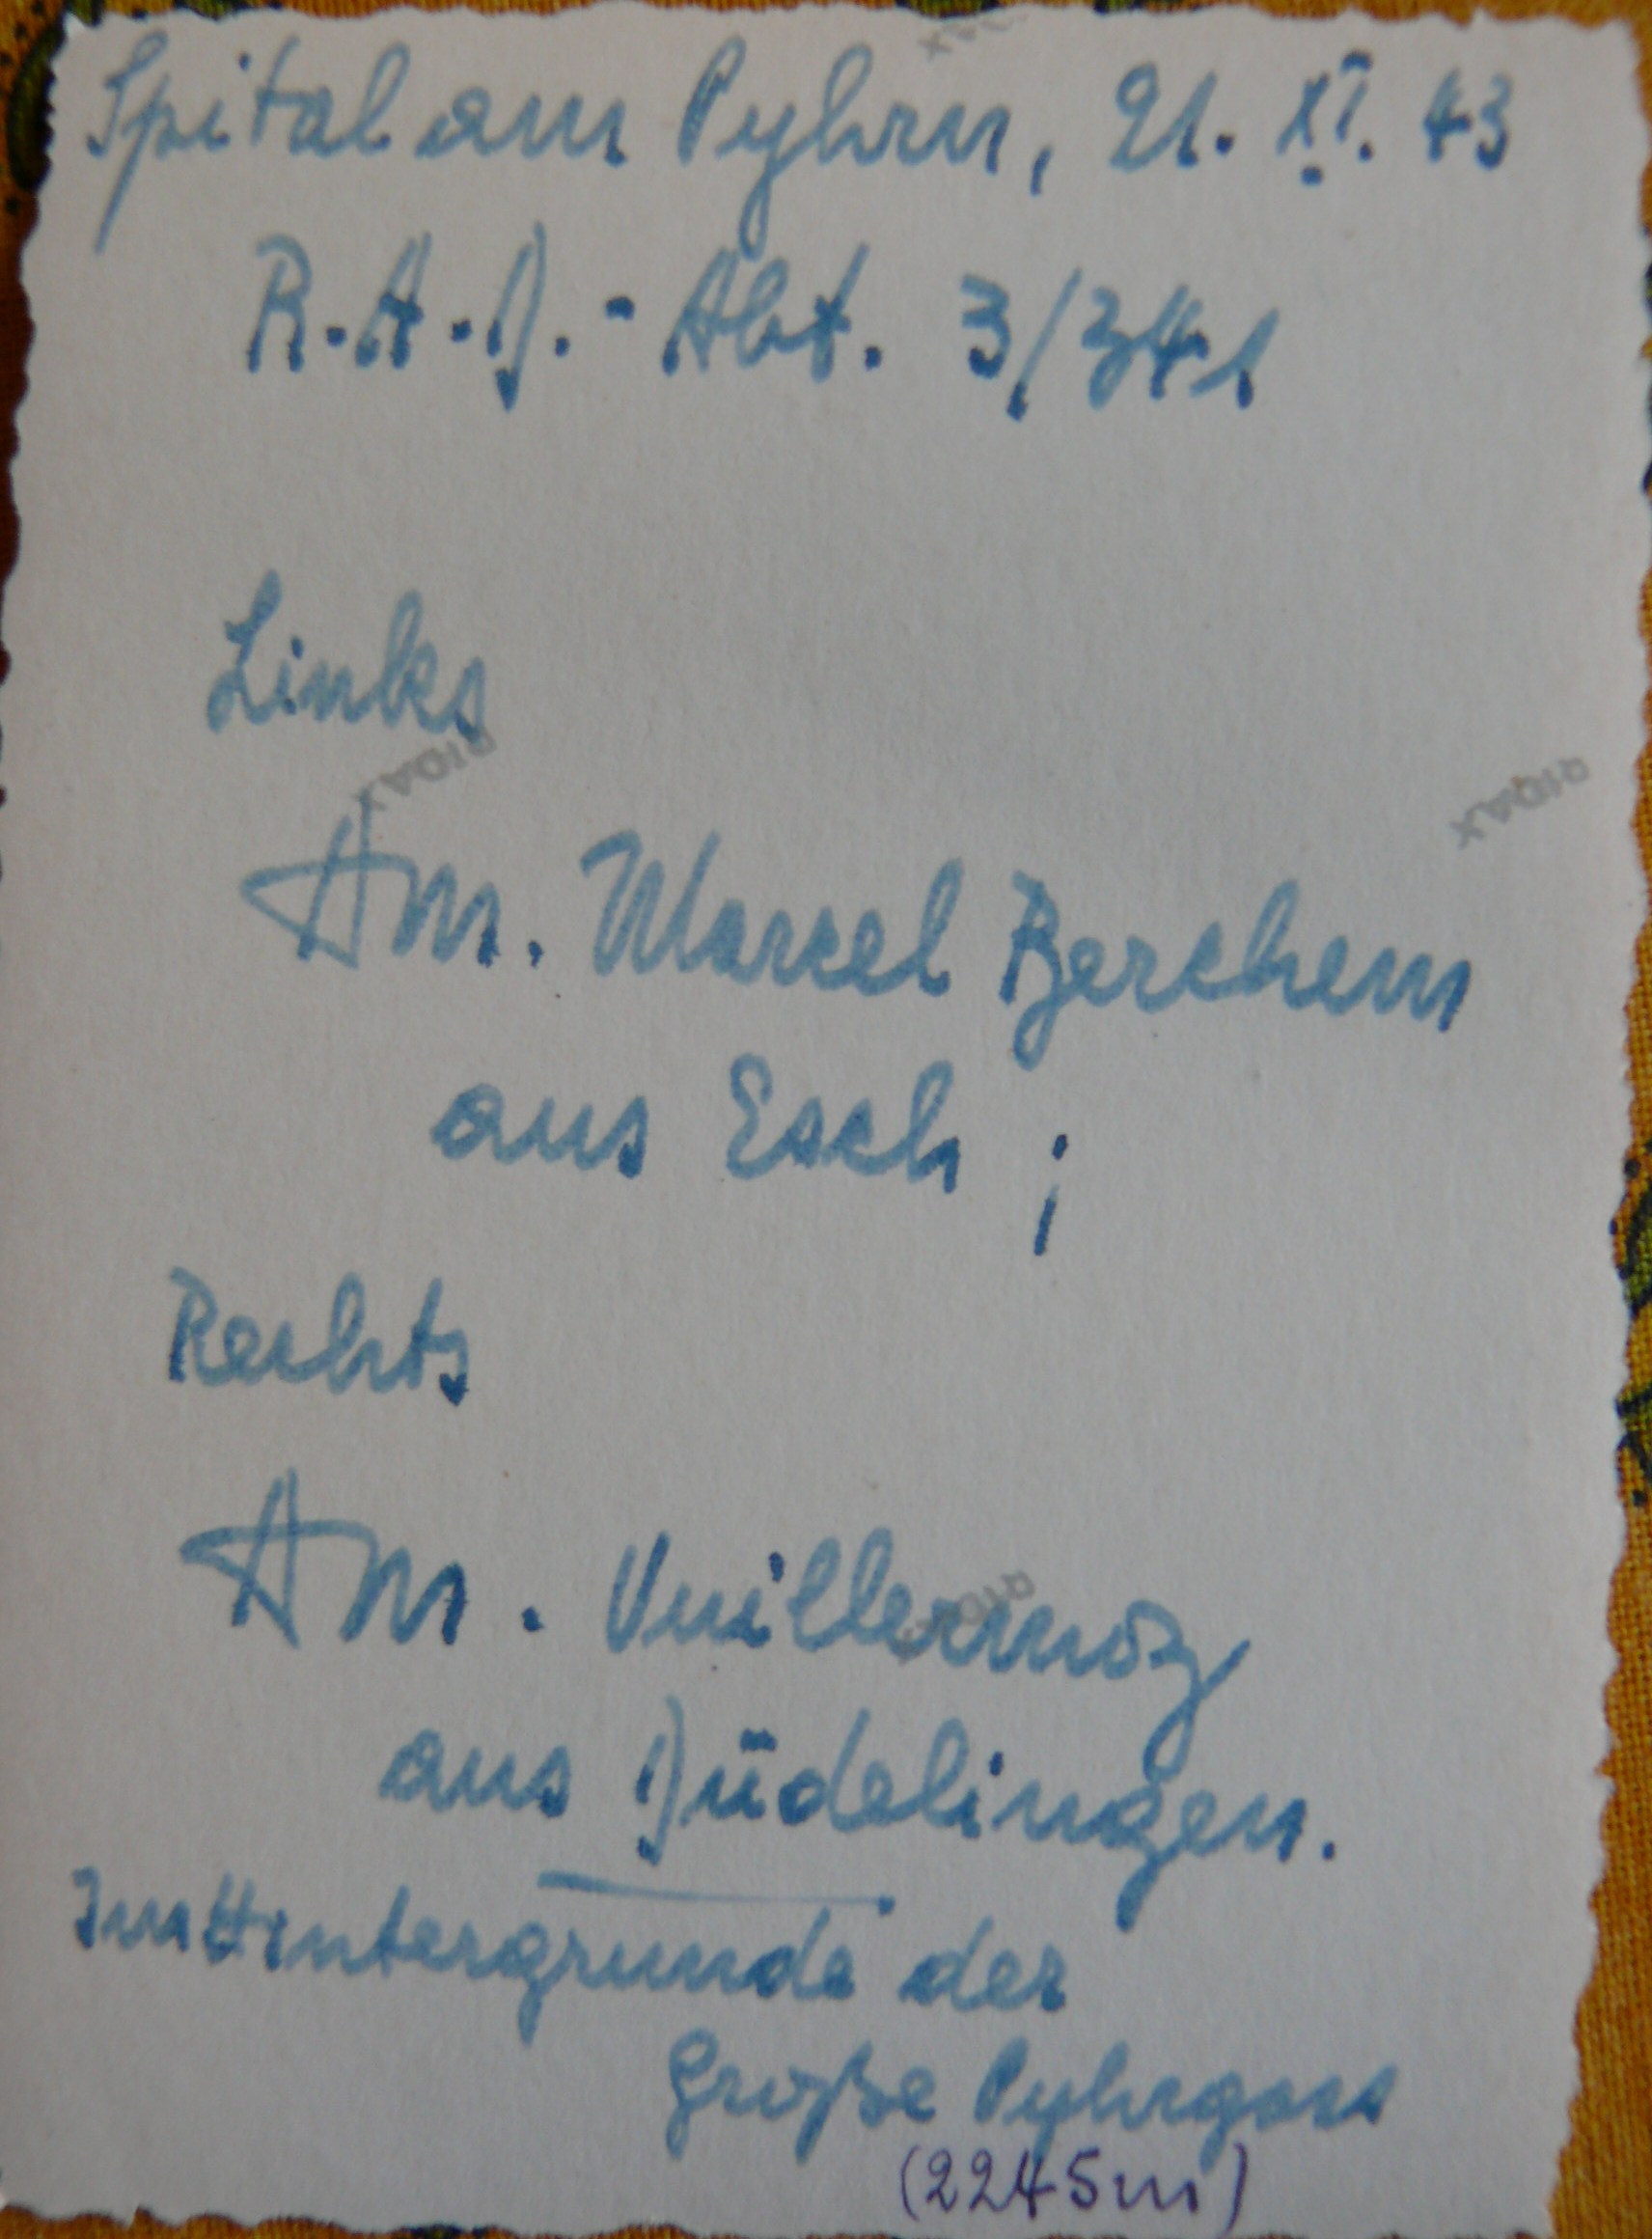 Spital am Pyhrn, 21. XI. 43
R.A.D.-Abt. 3/341
Links
Am. Marcel Berchem
aus Esch ;
Rechts
Am. Vuillermoz
aus Düdelingen.
Im Hintergrunde der
Große Pyhrgass
(2245m)